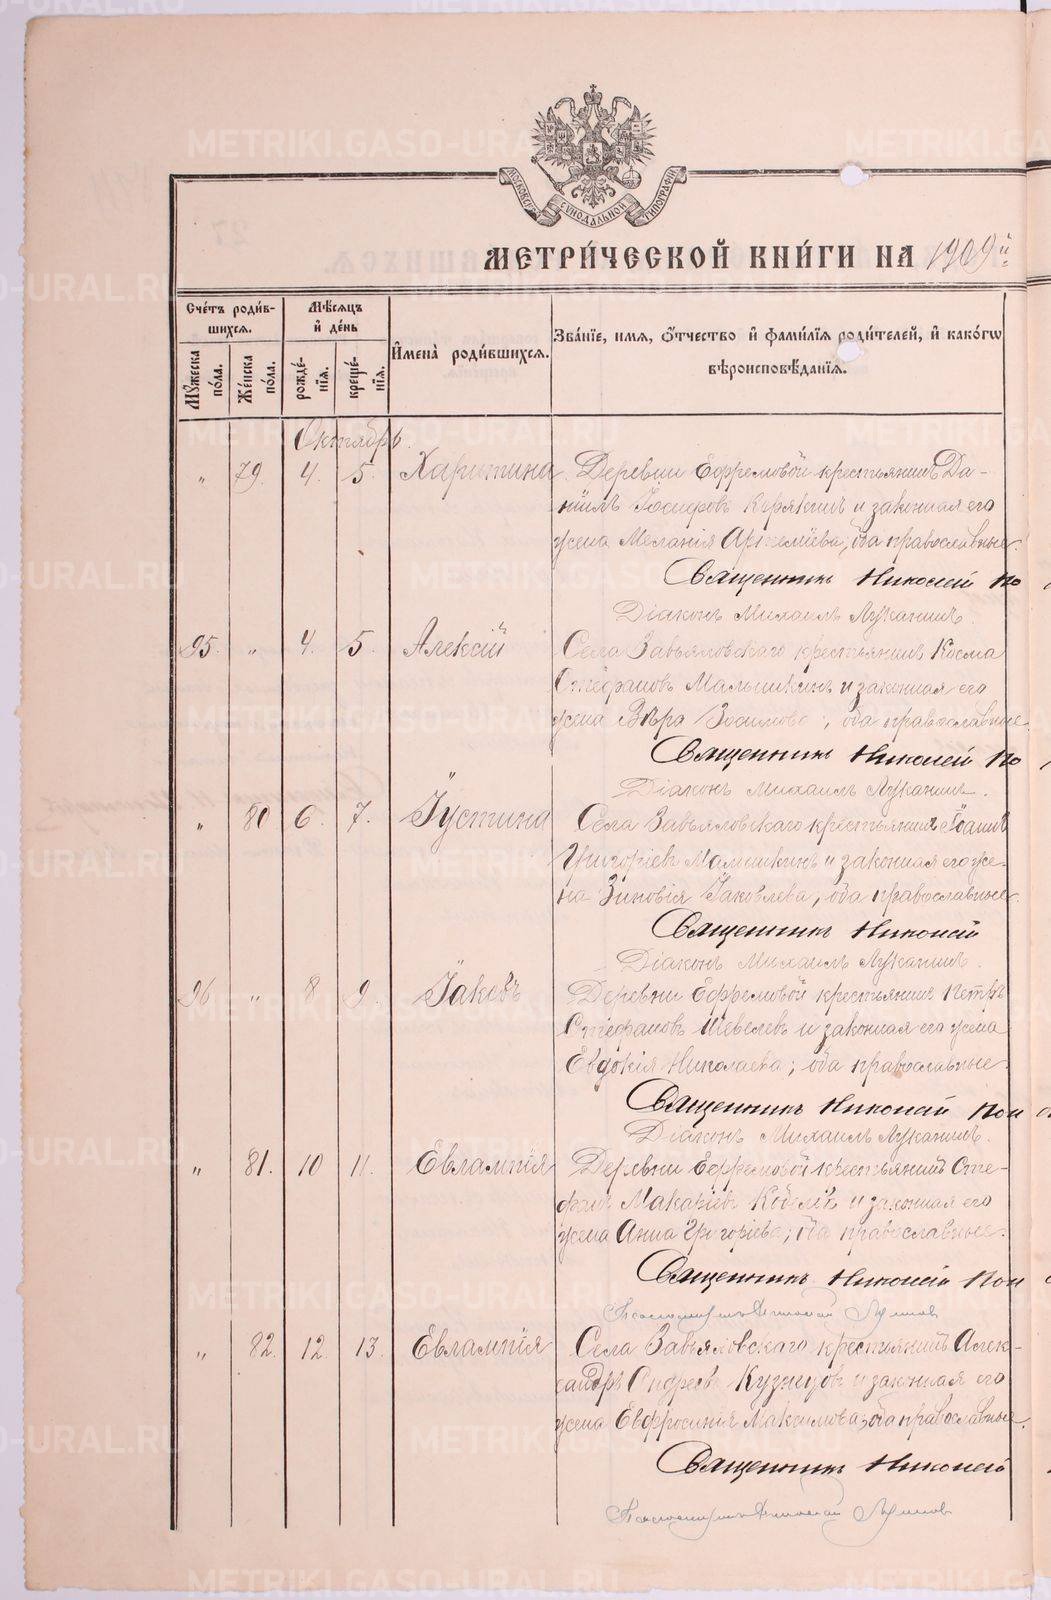 МОСКОВСК. СѴНОДАЛЬНОЙ ТИПОГРАФІИ
МЕТРИ́ЧЕСКОЙ КНИ́ГИ НА 1909й
Сче́тъ роди́в-
шихсѧ.
Мѣ́сѧцъ
и҆ де́нь
И҆мена̀ роди́вшихсѧ.
Зва́нїе, имѧ, ѻ҆́тчество и҆ фами́лїѧ роди́телей, и҆ како́гѡ
вѣроисповѣ́данїѧ.
Мꙋ́жеска по́ла.
Же́нска по́ла.
рожде́-
нїѧ.
креще́-
нїѧ.
Октябрь.
„ 79. 4. 5. Харитина. Деревни Ефремовой крестьянинъ Да-
ніилъ Іосифовъ и законная его
жена Меланія Артемиева, оба православные.
Священникъ Николай По
Діаконъ Михаилъ Луканинъ.
95. „ 4. 5. Алексій Села Завьяловскаго крестьянинъ Косма
Стефановъ Малышкинъ и законная его
жена Вѣра Зосимова, оба православные.
Священникъ Николай По
Діаконъ Михаилъ Луканинъ.
„ 80. 6. 7. Іустина Села Завьяловскаго крестьянинъ Іоаннъ
Григоріевъ Малышкинъ и законная его же-
на Зиновія Іаковлева, оба православные.
Священникъ Николай
Діаконъ Михаилъ Луканинъ.
96 „ 8 9. Іаковъ Деревни Ефремовой крестьянинъ Петръ
Стефановъ Шевелевъ и законная его жена
Евдокія Николаева; оба православные.
Священникъ Николай Пон
Діаконъ Михаилъ Луканинъ.
„ 81. 10 11. Евлампія Деревни Ефремовой крестьянинъ Сте-
фанъ Макаріевъ Кобелевъ и законная его
жена Анна Григоріева; оба православные.
Священникъ Николай Пон
Псаломщикъ
„ 82. 12. 13. Евлампія Села Завьяловскаго крестьянинъ Алек-
сандръ Андреевъ Кузнецовъ и законная его
жена Евфросинія Максимова, оба православные.
Священникъ Николай
Псаломщикъ
METRIKI.GASO-URAL.RU